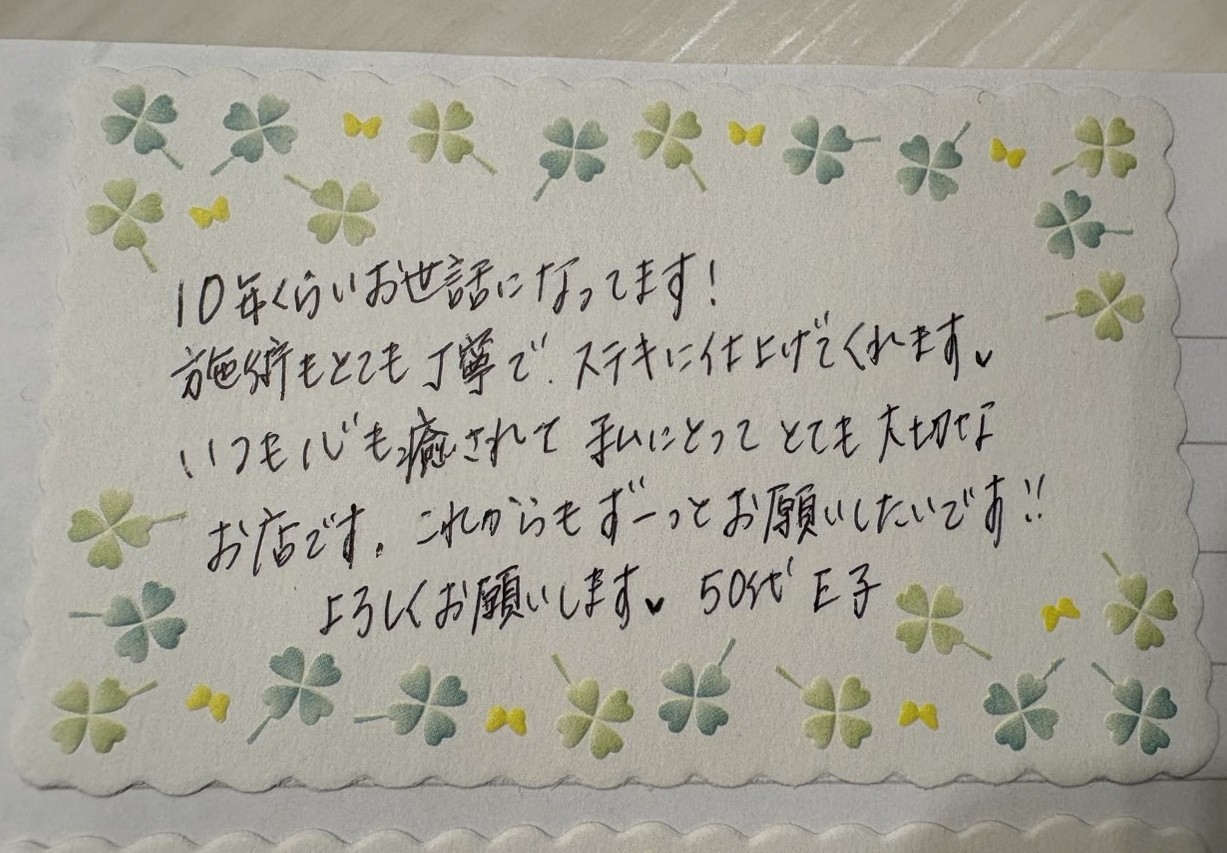 10年くらいお世話になってます!
施術もとても丁寧で、ステキに仕上げてくれます♥
いつも心も癒されて私にとってとても大切な
お店です。これからもずーっとお願いしたいです!!
よろしくお願いします♥ 50代 E子